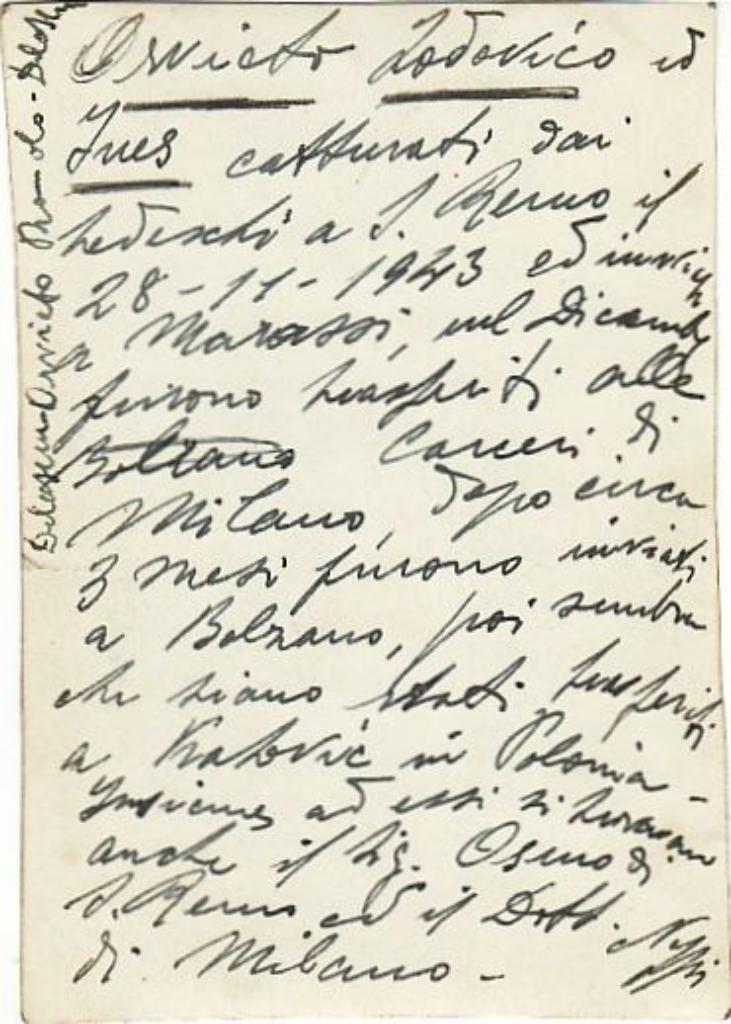 Orvieto Lodovico ed
Ines catturati dai
tedeschi a S. Remo il
28-11-1943 ed inviati
a Marassi, nel Dicembre
furono trasferiti alle
Bolzano Carceri di
Milano, dopo circa
3 mesi furono inviati
a Bolzano, poi sembra
che siano stati trasferiti
a Katovic in Polonia-
Insieme ad essi si trovavano
anche il Sig. Osmo di
S. Remo ed il Dott.
di Milano-
Orvieto